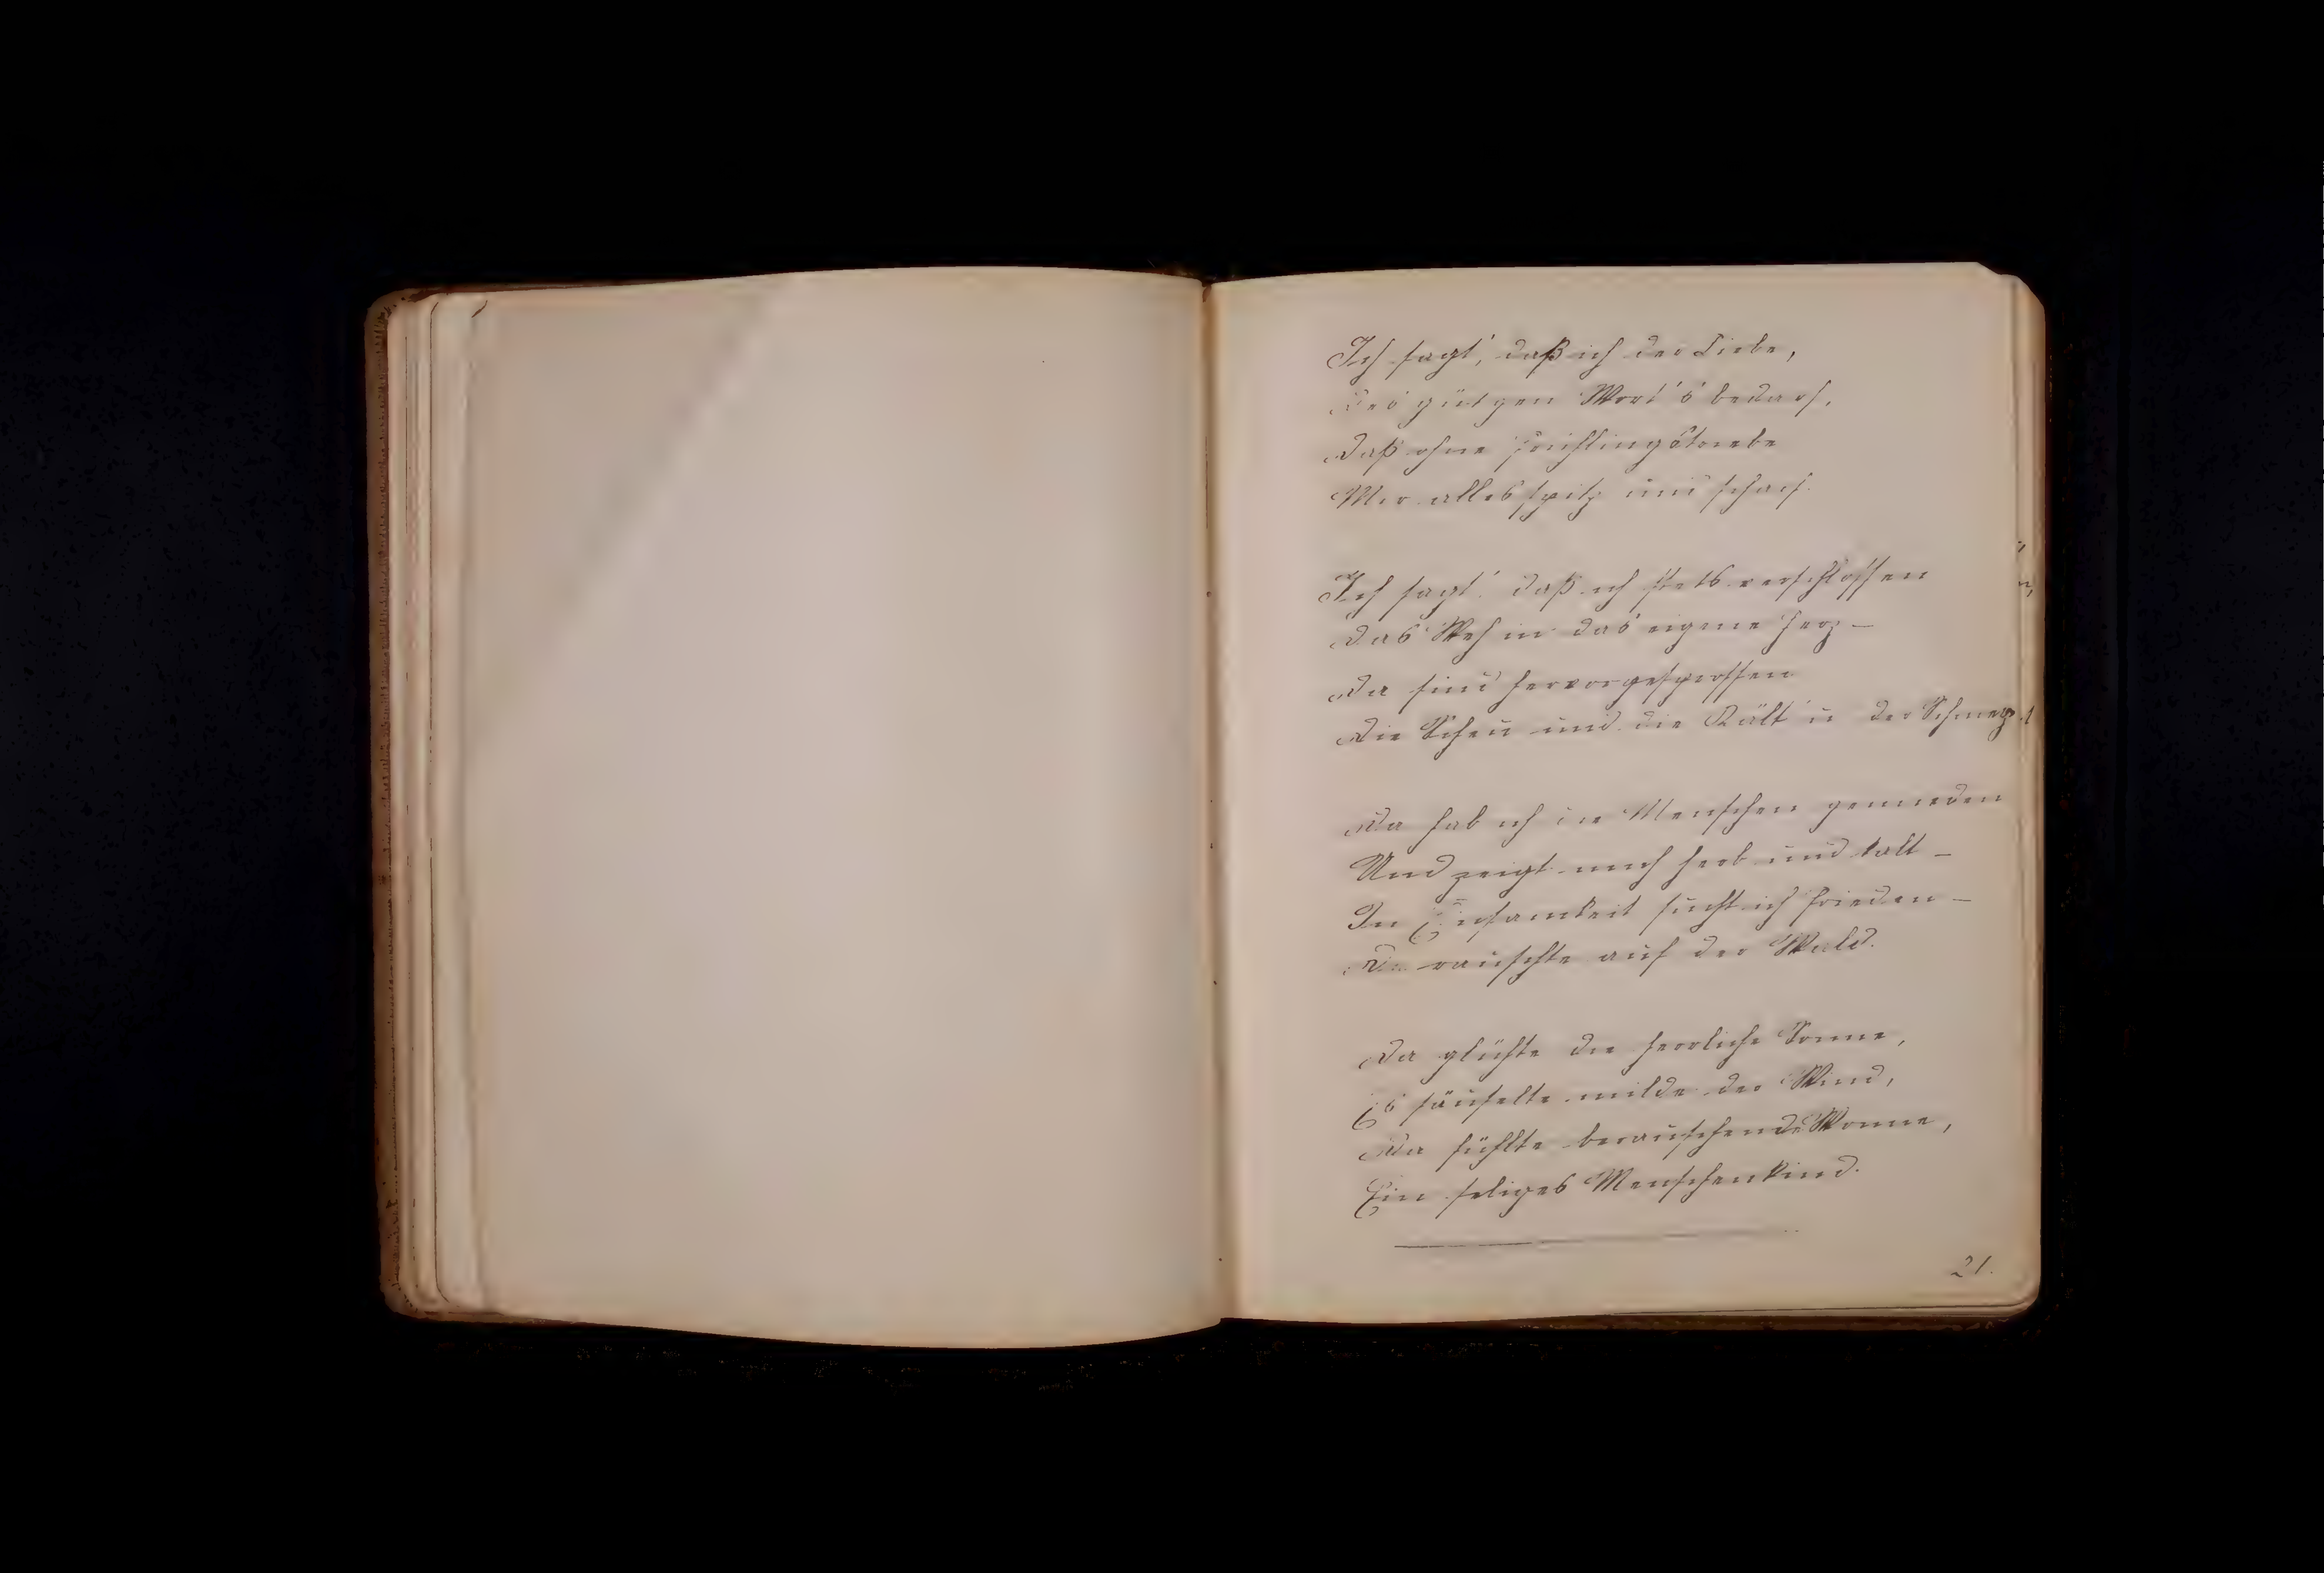 Ich sagt', daß ich der Liebe,
Des güt'gen Wort's bedarf,
Daß ohne Frühlingstriebe
Mir alles spitz und scharf.
Ich sagt' daß ich stets verschlossen
Das Weh in das eigene Herz –
Da sind hervorgesprossen
Die Scheu und die Kält' u der Schmerz
Da hab ich die Menschen gemieden
Und zeigt mich herb und kalt –
In Einsamkeit sucht ich Frieden –
Da rauschte auf der Wald.
Da glühte die herrliche Sonne,
Es säuselte milde der Wind,
Da fühlte berauschende Wonne,
Ein seliges Menschenkind.
21.